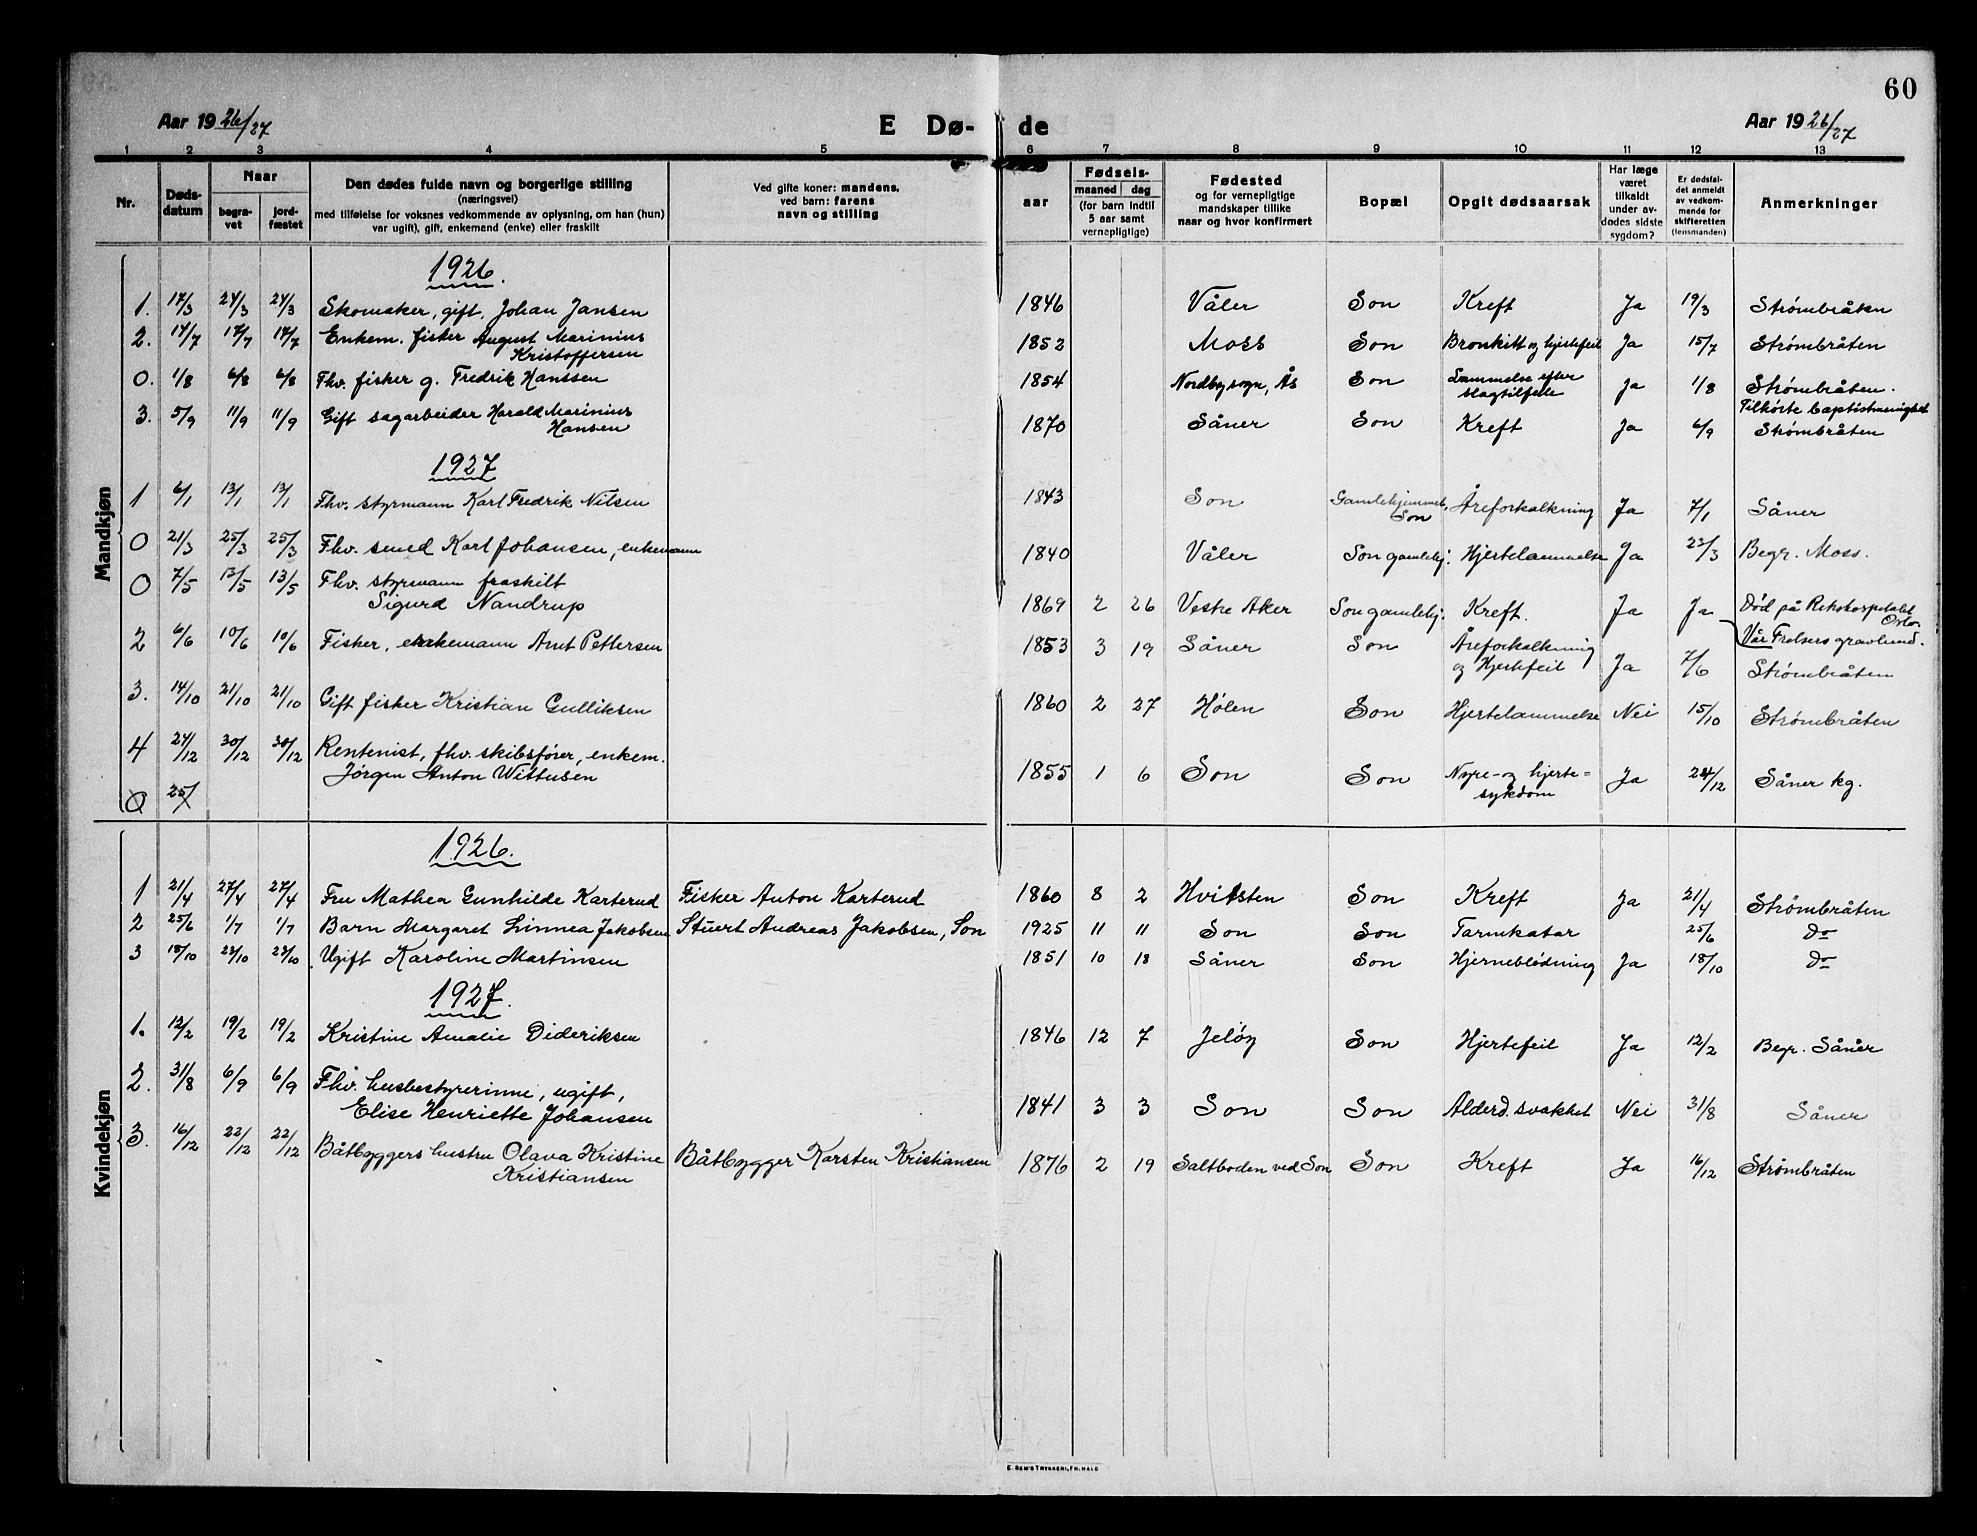 60
Aar 1926/27 E Dø- de Aar 1926/27
1 2 3 4 5 6 7 8 9 10 11 12 13
Nr. Døds-datum Naar begravet jordfæstet Den dødes fulde navn og borgerlige stilling (næringsvei) med tilføielse for voksnes vedkommende av oplysning, om han (hun) var ugift), gift, enkemand (enke) eller fraskilt Ved gifte koner: mandens, ved barn: farens navn og stilling Fødsels- aar maaned dag (for barn indtil 5 aar samt vernepligtige) Fødested og for vernepligtige mandskaper tillike naar og hvor konfirmert Bopæl Opgit dødsaarsak Har læge været tilkaldt under avdødes sidste sygdom? Er dødsfaldet anmeldt av vedkommende for skifteretten (lensmanden) Anmerkninger
Mandkjøn
1926.
1. 17/3 24/3 24/3 Skomaker, gift, Johan Jansen 1846 Våler Son Kreft Ja 19/3 Strømbråten
2. 14/7 17/7 17/7 Enkem. fisker August Marinius Kristoffersen 1852 Moss Son Bronkitt og hjertefeil Ja 15/7 Strømbråten
0. 1/8 6/8 6/8 Fhv. fisker g. Fredrik Hanssen 1854 Nordby sogn, Ås Son Lammelse efter slagtilfelle Ja 1/8 Strømbråten. Tilhørte baptistmenighet
3. 5/9 11/9 11/9 Gift sagarbeider Harald Marinius Hansen 1870 Såner Son Kreft Ja 6/9 Strømbråten
1927
1 6/1 13/1 13/1 Fhv. styrmann Karl Fredrik Nilsen 1843 Son Gamlehjemmet, Son Åreforkalkning Ja 7/1 Såner
0 21/3 25/3 25/3 Fhv. smed Karl Johansen, enkemann 1840 Våler Son gamlehj. Hjertelammelse Ja 22/3 Begr. Moss.
0 7/5 13/5 13/5 Fhv. styrmann fraskilt Sigurd Nandrup 1869 2 26 Vestre Aker Son gamlehj. Kreft. Ja Ja Død på Rikshospitalet Oslo. Vår Frelsers gravlund.
2 6/6 10/6 10/6 Fisker, enkemann Arnt Pettersen 1853 3 19 Såner Son Åreforkalkning og Hjertefeil Ja 7/6 Strømbråten
3. 14/10 21/10 21/10 Gift fisker Kristian Gulliksen 1860 2 27 Hølen Son Hjertelammelse Nei 15/10 Strømbråten
4 24/12 30/12 30/12 Rentenist, fhv. skibsfører, enkem. Jørgen Anton Wittusen 1855 1 6 Son Son Nyre- og hjerte= sykdom Ja 24/12 Såner kg.
0 25/
Kvindekjøn
1926.
1 21/4 27/4 27/4 Fru Mathea Gunhilde Karterud Fisker Anton Karterud 1860 8 2 Hvitsten Son Kreft Ja 21/4 Strømbråten
2 25/6 1/7 1/7 Barn Margaret Linnea Jakobsen Stuert Andreas Jakobsen, Son 1925 11 11 Son Son Tarmkatar 25/6 do
3 18/10 23/10 23/10 Ugift Karoline Martinsen 1851 10 18 Såner Son Hjerneblødning Ja 18/10 do
1927.
1. 12/2 19/2 19/2 Kristine Amalie Dideriksen 1846 12 7 Jeløy Son Hjertefeil Ja 12/2 Begr. Såner
2. 31/8 6/9 6/9 Fhv. husbestyrerinne, ugift, Elise Henriette Johansen 1841 3 3 Son Son Alderd. svakhet Nei 31/8 Såner
3. 16/12 22/12 22/12 Båtbyggers hustru Olava Kristine Kristiansen Båtbygger Karsten Kristiansen 1876 2 19 Saltboden ved Son Son Kreft Ja 16/12 Strømbråten
E. SEM'S TRYKKERI, FR.HALD